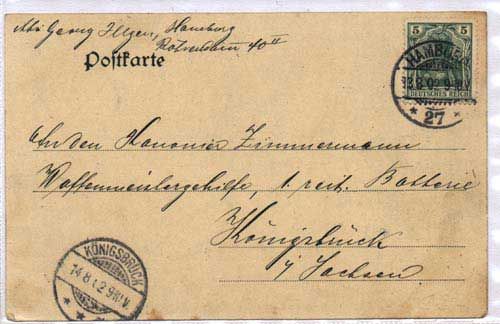 Abs. Georg Ilgen, Hamburg
40 II
Postkarte
5
DEUTSCHES REICH
HAMBURG
13.8.02.9-10V.
* 27 *
An den Kanonier Zimmermann
Waffenmeistergehilfe, 1. reit. Batterie
Königsbrück
i/ Sachsen.
KÖNIGSBRÜCK
14 8 02 9-10V